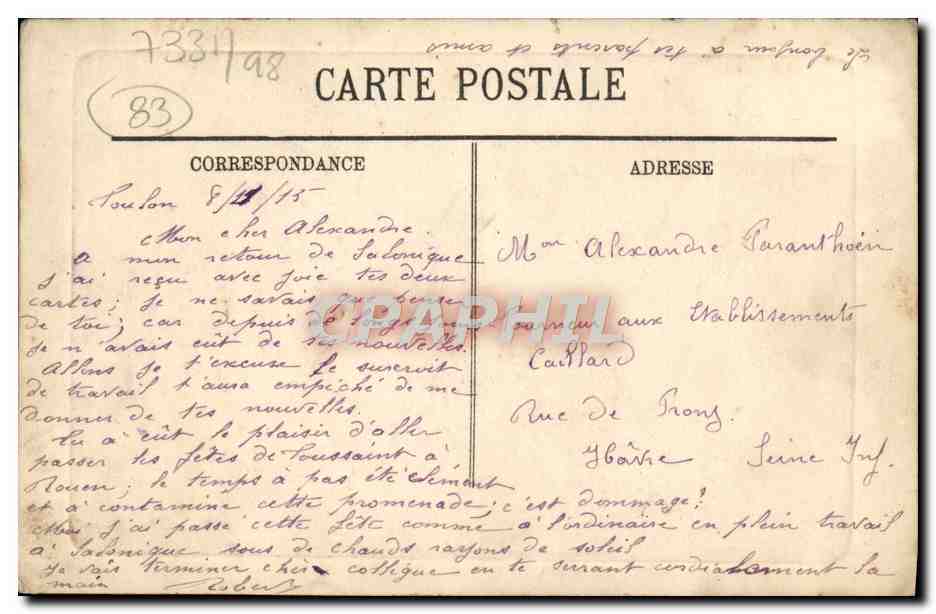 7331/98
83
Le bonjour à tes parents et amis
CARTE POSTALE
CORRESPONDANCE
ADRESSE
Toulon 8/11/15
Mon cher Alexandre.
A mon retour de Salonique
j'ai reçu avec joie tes deux
cartes; Je ne savais que penser
de toi; car depuis de longs
Je n'avais eût de tes nouvelles.
Allons je t'excuse le surcroit
de travail t'aura empêché de me
donner de tes nouvelles.
Tu a eût le plaisir d'aller
passer les fêtes de Toussaint à
Rouen; le temps à pas été clément
et a contaminé cette promenade; c'est dommage!
Moi j'ai passé cette fête comme à l'ordinaire en plein travail
à Salonique sous de chauds rayons de soleil
Je vais terminer cher collègue en te serrant cordialement la
main Robert
Mon Alexandre Paranthoën
Tourneur aux Etablissements
Caillard
Rue de Prony.
Hâvre Seine Inf.
CPAPHIL